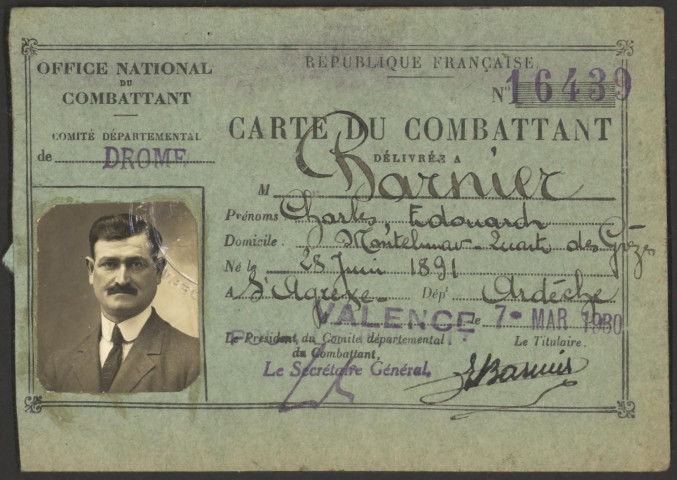 OFFICE NATIONAL
DU
COMBATTANT
COMITÉ DÉPARTEMENTAL
de DROME
REPUBLIQUE FRANÇAISE
N° 16439
CARTE DU COMBATTANT
DÉLIVRÉE A
M Barnier
Prénoms Charles Edouard
Domicile. Montelimar - Quart des
Né le 28 Juin 1891
A St Agrève Dépt Ardèche
VALENCE le 7 - MAR 1930
Le Président du Comité départemental
du Combattant,
Le Secrétaire Général,
Le Titulaire.
Barnier